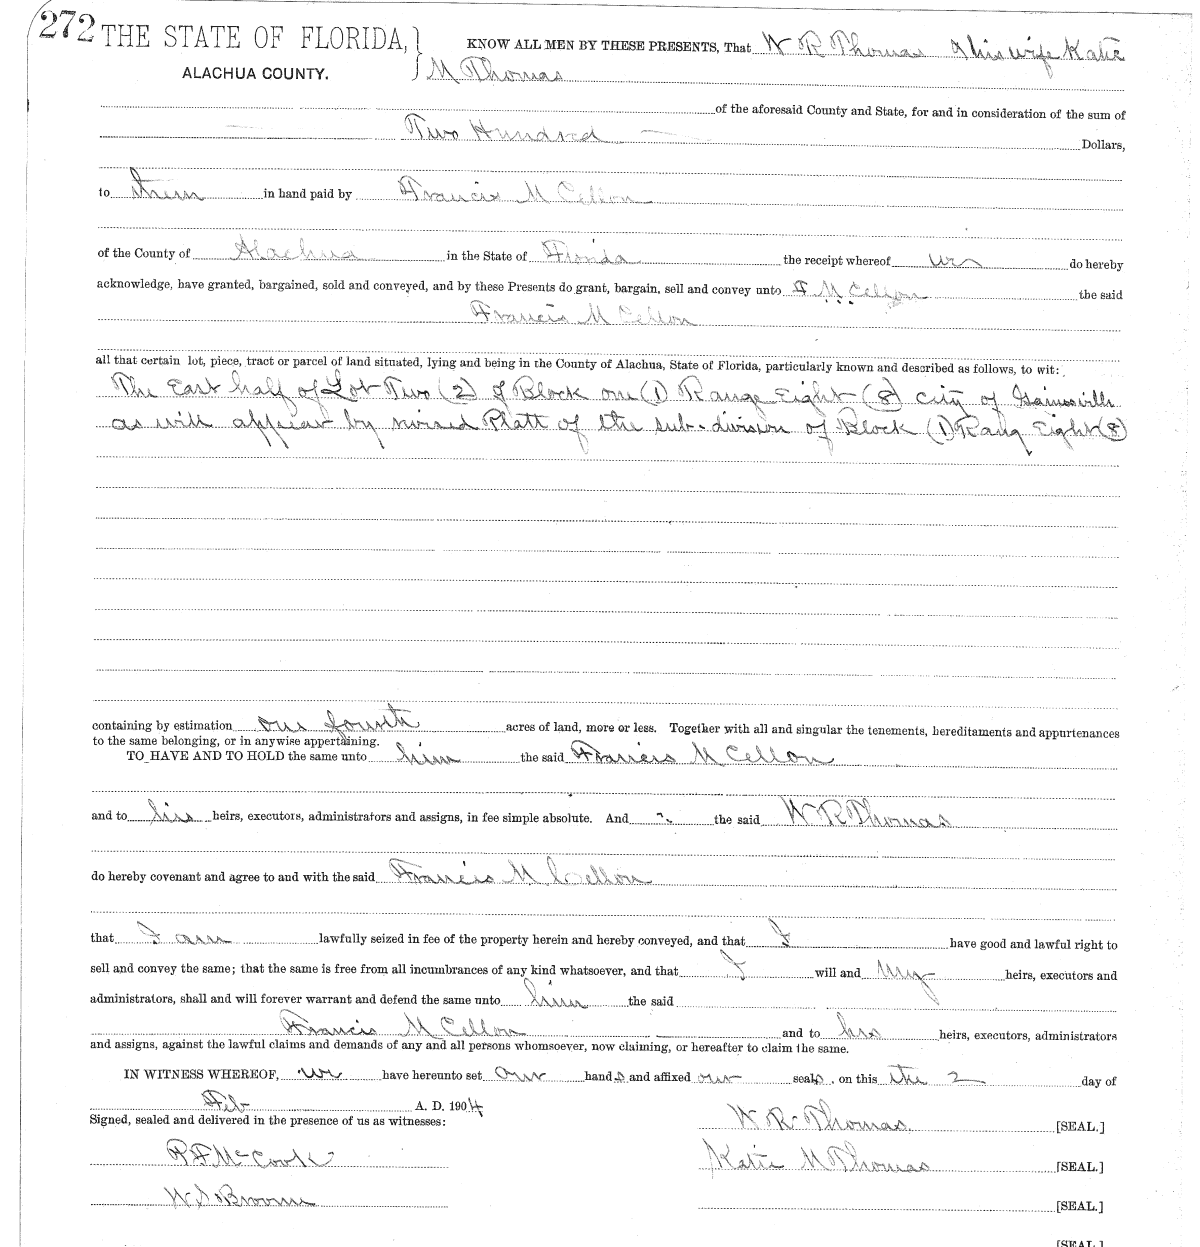 272 THE STATE OF FLORIDA, KNOW ALL MEN BY THESE PRESENTS, That W R Thomas & his wife Katie
ALACHUA COUNTY. M Thomas
of the aforesaid County and State, for and in consideration of the sum of
Two Hundred Dollars,
to them in hand paid by Francis M Cellon
of the County of Alachua in the State of Florida the receipt whereof we do hereby
acknowledge, have granted, bargained, sold and conveyed, and by these Presents do grant, bargain, sell and convey unto F M Cellon the said
Francis M Cellon
all that certain lot, piece, tract or parcel of land situated, lying and being in the County of Alachua, State of Florida, particularly known and described as follows, to wit:
The East half of Lot Two (2) of Block one (1) Range Eight (8) City of Gainesville
as will appear by revised Platt of the sub-division of Block (1) Rang Eight (8)
containing by estimation one fourth acres of land, more or less. Together with all and singular the tenements, hereditaments and appurtenances
to the same belonging, or in anywise appertaining.
TO HAVE AND TO HOLD the same unto him the said Francis M Cellon
and to his heirs, executors, administrators and assigns, in fee simple absolute. And the said W R Thomas
do hereby covenant and agree to and with the said Francis M Cellon
that I am lawfully seized in fee of the property herein and hereby conveyed, and that I have good and lawful right to
sell and convey the same; that the same is free from all incumbrances of any kind whatsoever, and that I will and my heirs, executors and
administrators, shall and will forever warrant and defend the same unto him the said
Francis M Cellon and to his heirs, executors, administrators
and assigns, against the lawful claims and demands of any and all persons whomsoever, now claiming, or hereafter to claim the same.
IN WITNESS WHEREOF, we have hereunto set our hands and affixed our seals, on this the 2 day of
Feb A. D. 1904
Signed, sealed and delivered in the presence of us as witnesses: W R Thomas [SEAL.]
P F McCook Katie M Thomas [SEAL.]
W S Broome [SEAL.]
[SEAL.]